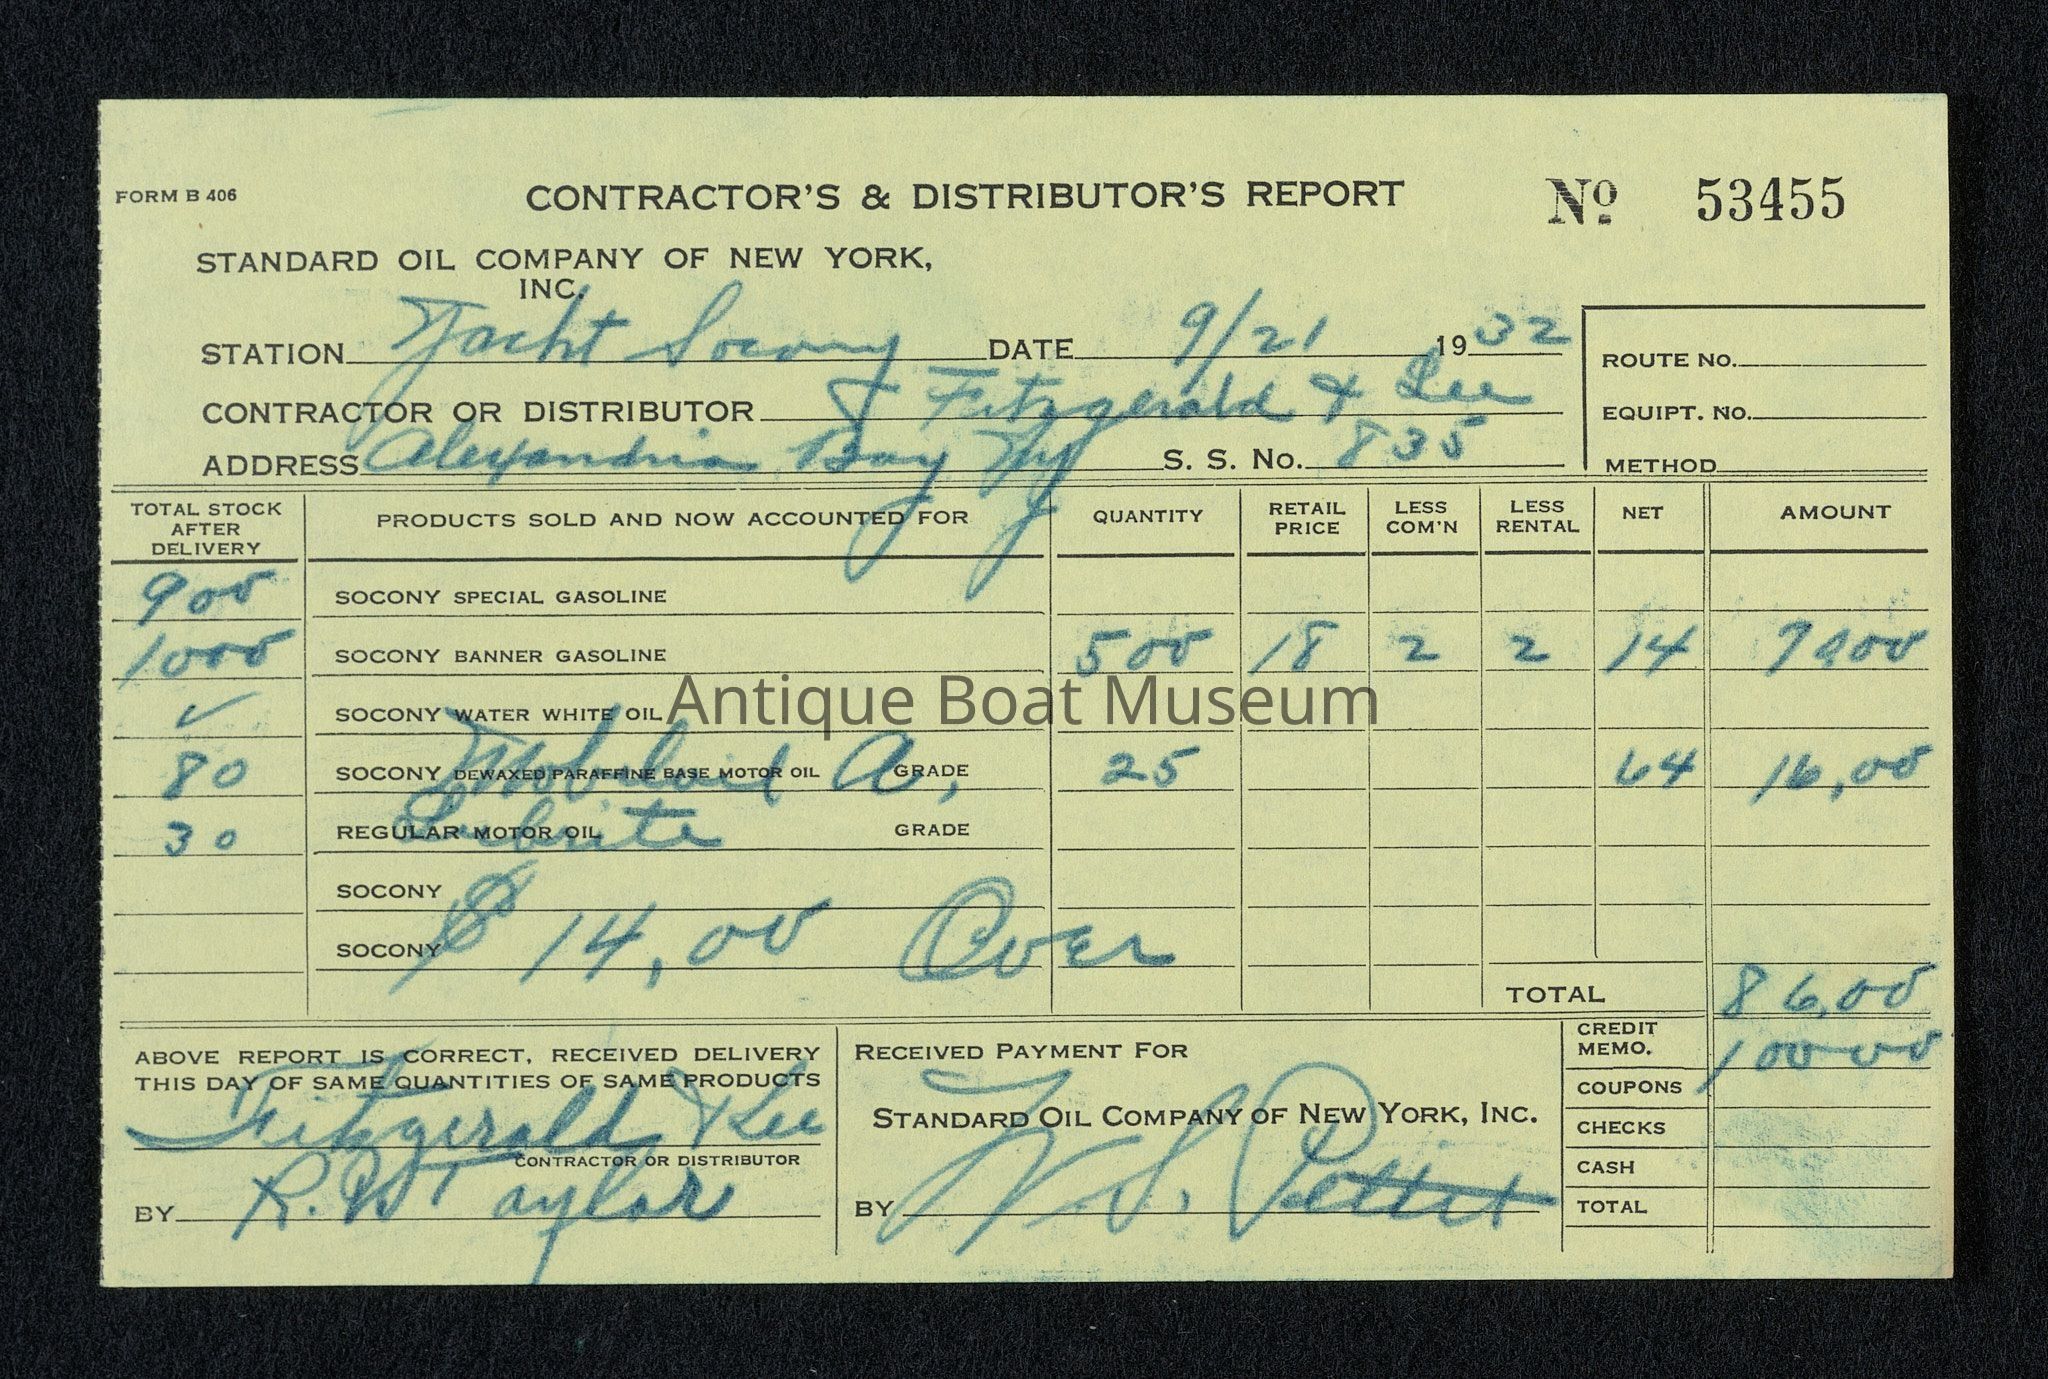 FORM B 406
CONTRACTOR'S & DISTRIBUTOR'S REPORT
Nº 53455
STANDARD OIL COMPANY OF NEW YORK,
INC.
STATION Yacht Socony DATE 9/21 1932
CONTRACTOR OR DISTRIBUTOR Fitzgerald & Lee
ADDRESS Alexandria Bay NY S. S. No. 835
ROUTE No.
EQUIPT. No.
METHOD
TOTAL STOCK AFTER DELIVERY PRODUCTS SOLD AND NOW ACCOUNTED FOR QUANTITY RETAIL PRICE LESS COM'N LESS RENTAL NET AMOUNT
900 SOCONY SPECIAL GASOLINE
1000 SOCONY BANNER GASOLINE 500 18 2 2 14 70 00
✓ SOCONY WATER WHITE OIL
Antique Boat Museum
80 SOCONY DEWAXED PARAFFINE BASE MOTOR OIL Mobiloil A, GRADE 25 64 16,00
30 REGULAR MOTOR OIL Lubrite GRADE
SOCONY
SOCONY $ 14,00 Over
TOTAL 86,00
ABOVE REPORT IS CORRECT, RECEIVED DELIVERY
THIS DAY OF SAME QUANTITIES OF SAME PRODUCTS
Fitzgerald & Lee
CONTRACTOR OR DISTRIBUTOR
BY R. W Taylor
RECEIVED PAYMENT FOR
STANDARD OIL COMPANY OF NEW YORK, INC.
BY S. Pettit
CREDIT MEMO. 100 00
COUPONS
CHECKS
CASH
TOTAL